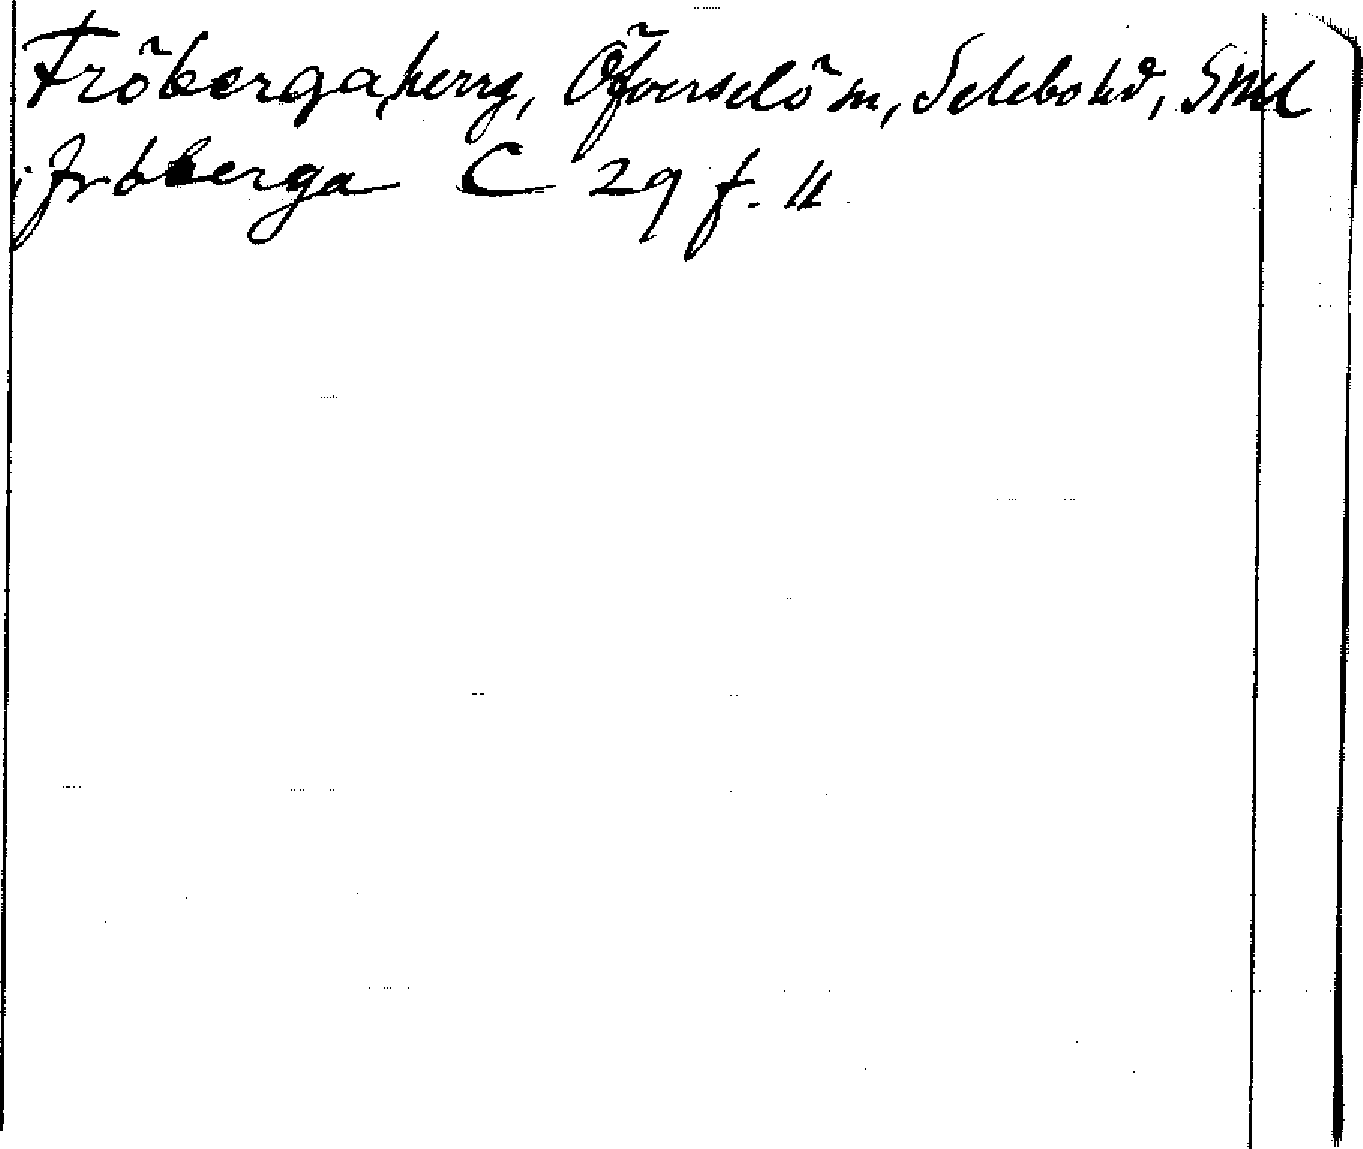 Fröberga, herrg, Öfverselö sn, Selebo hd, Sml
i frøberga C 29 f. 11